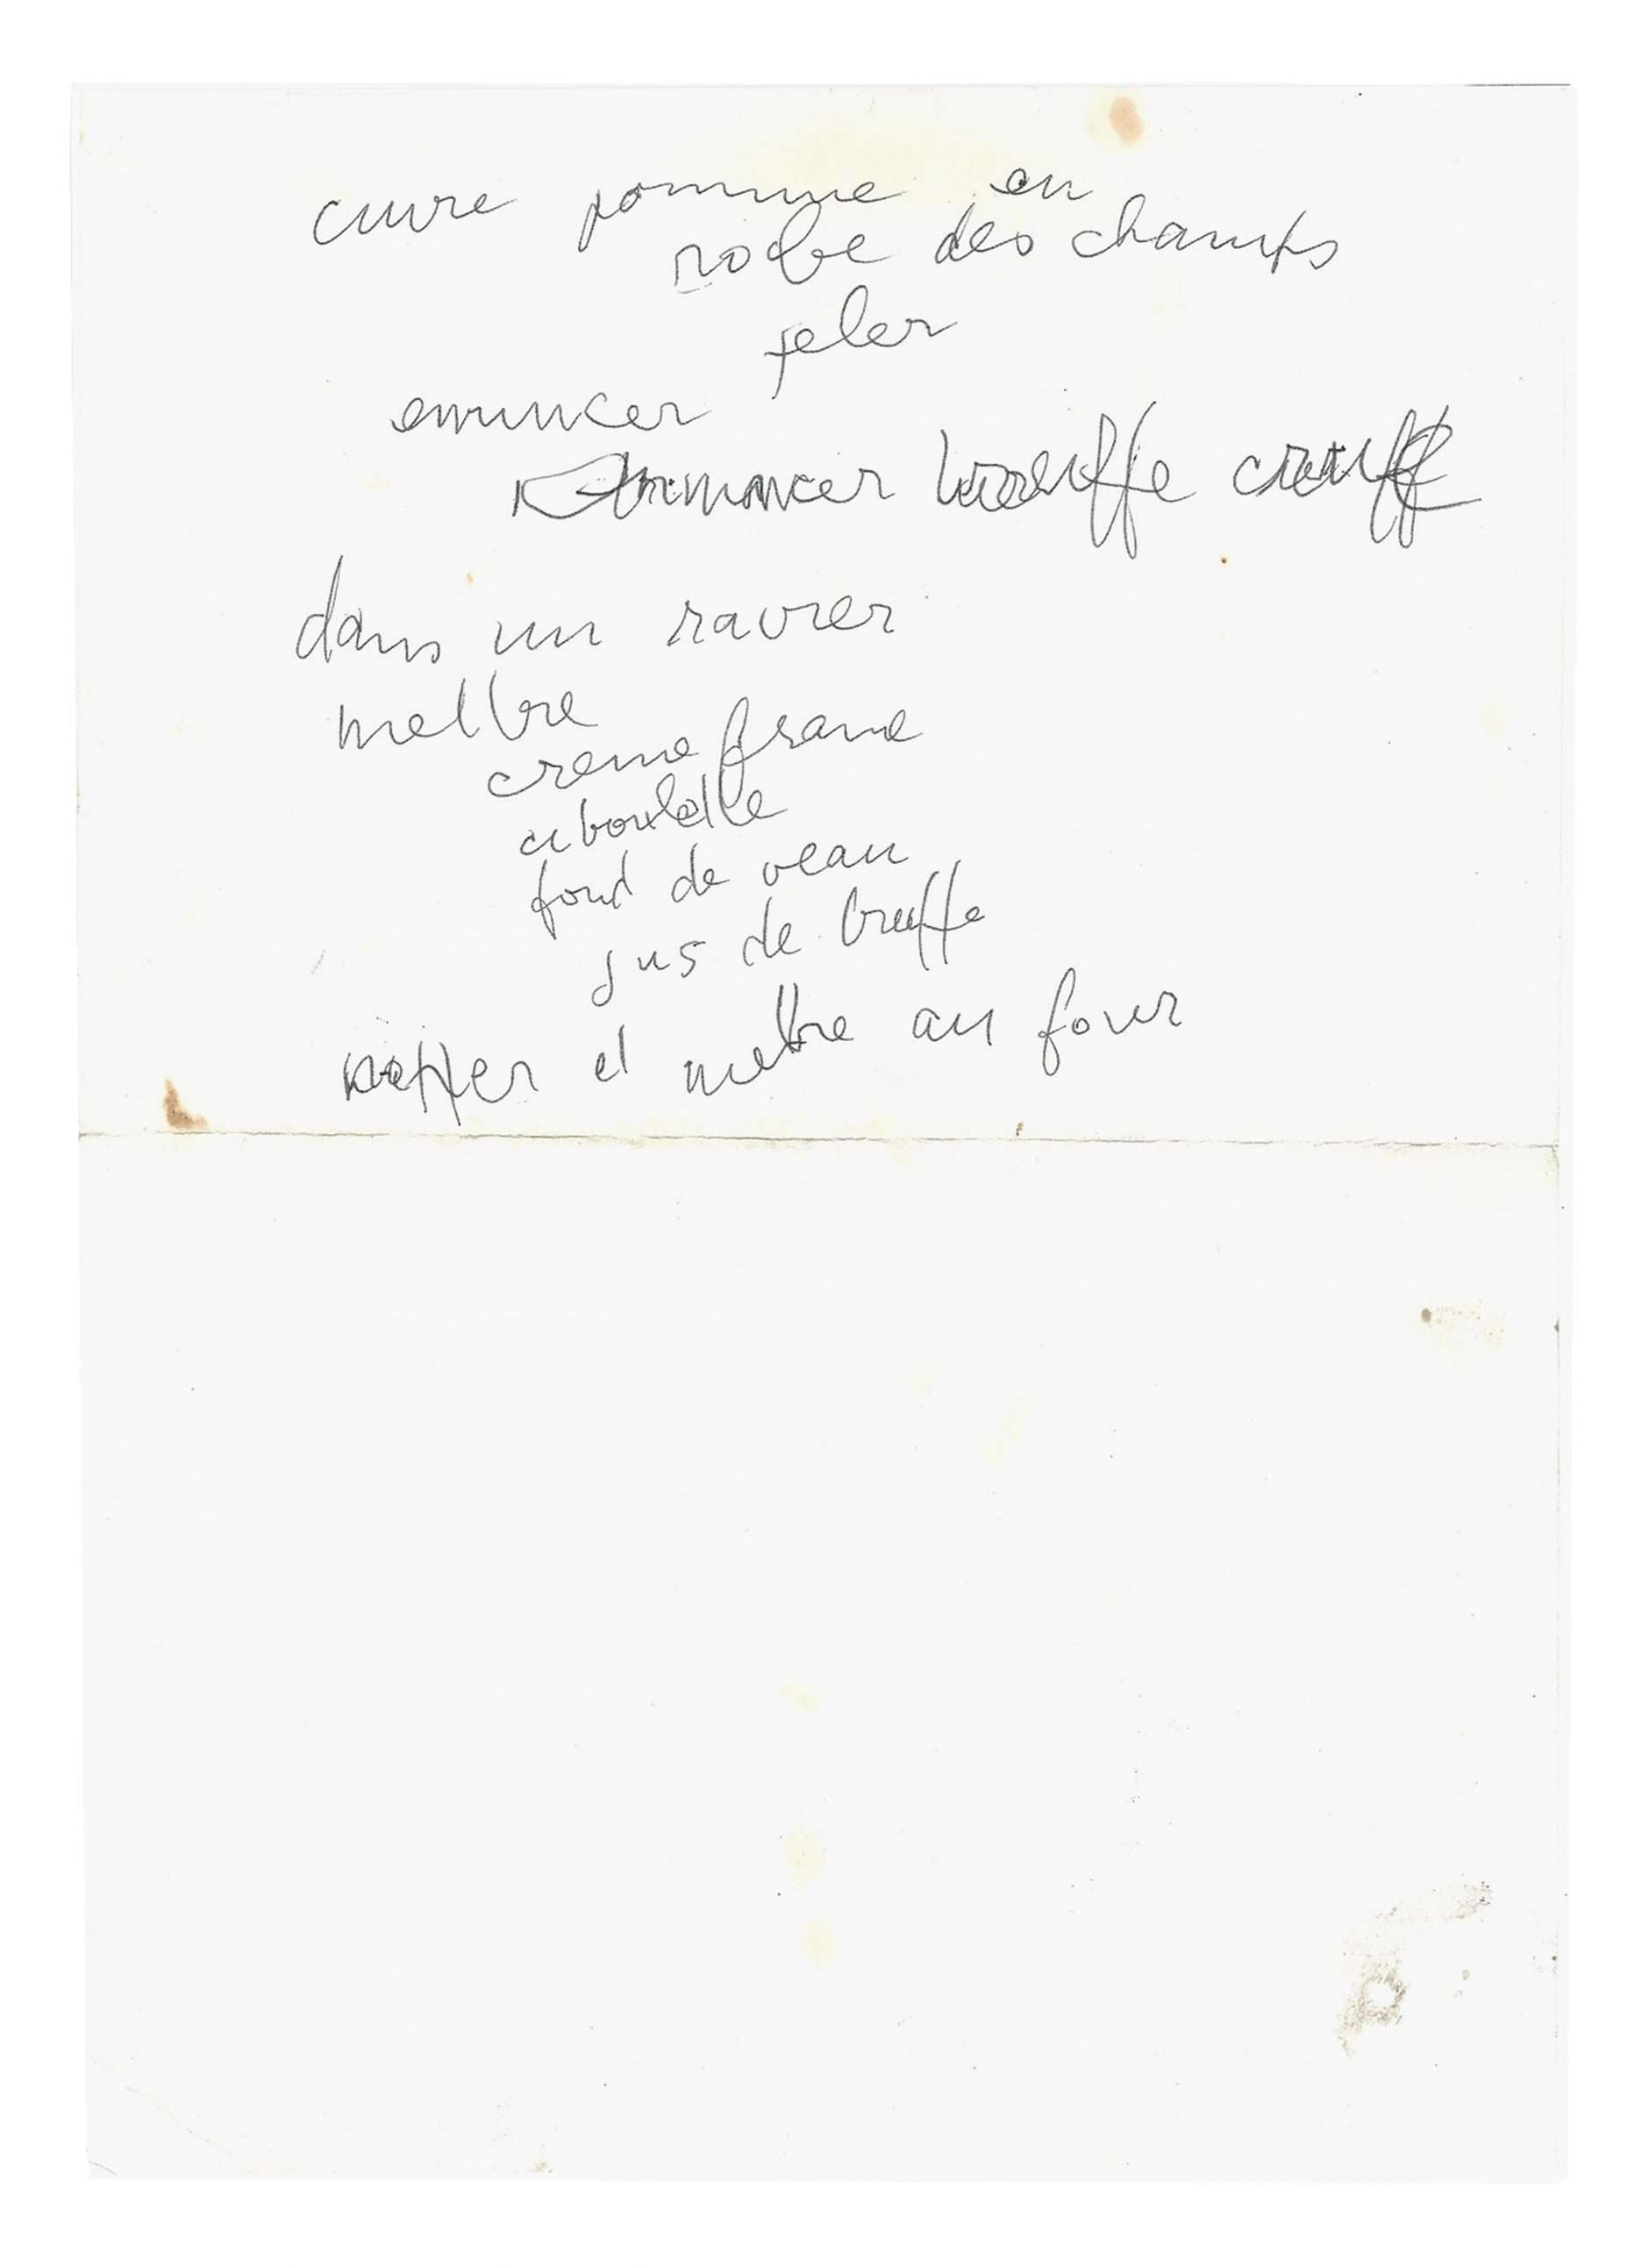 cuire pomme en
robe des champs
peler
emincer
emmincer truffe
dans un ravier
mettre
creme franc
ciboulette
fond de veau
jus de truffe
napper et mettre au four